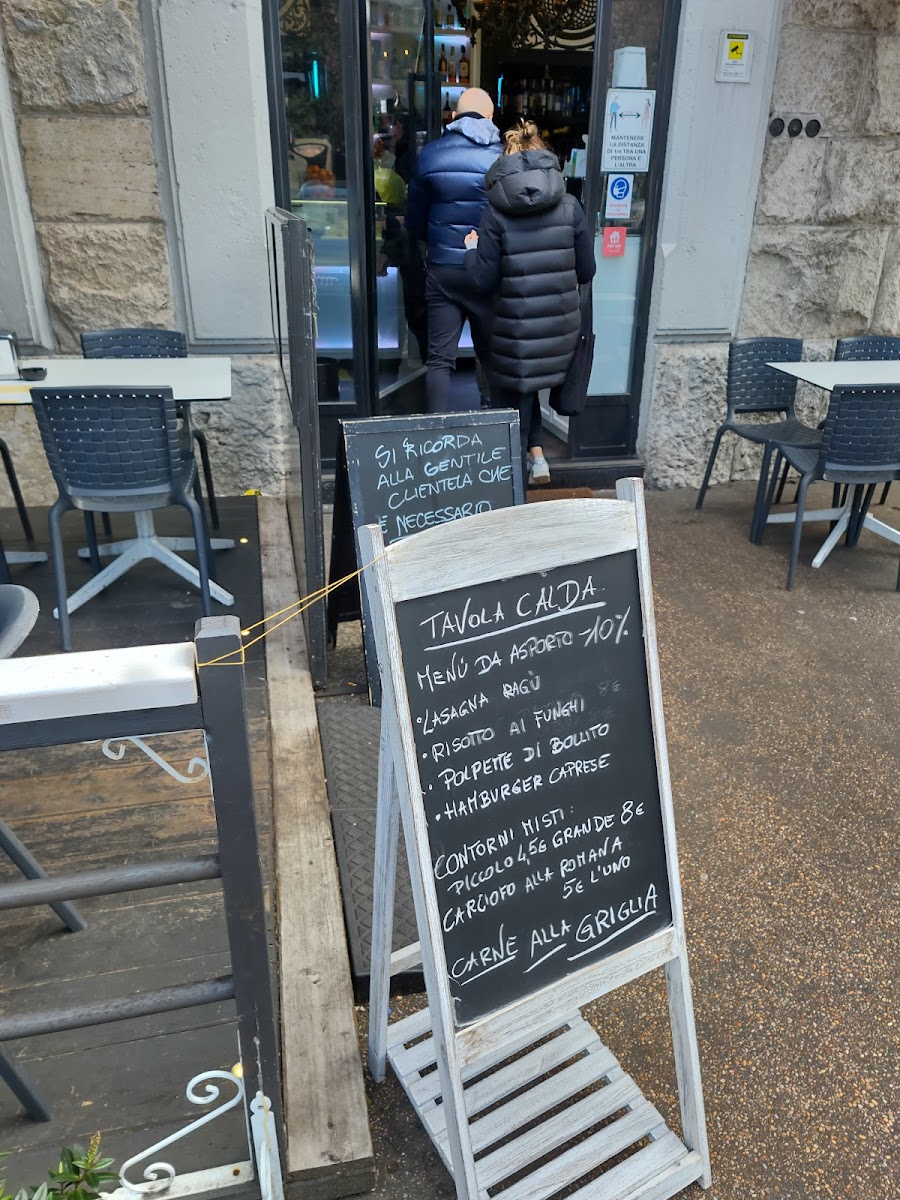 MANTENERE
LA DISTANZA
DI 1M TRA UNA
PERSONA E
L'ALTRA
SI RICORDA
ALLA GENTILE
CLIENTELA CHE
E NECESSARIO
TAVOLA CALDA
MENÙ DA ASPORTO -10%
•LASAGNA RAGÙ
•RISOTTO AI FUNGHI 8€
•POLPETTE DI BOLLITO
•HAMBURGER CAPRESE
CONTORNI MISTI:
PICCOLO 4,5€ GRANDE 8€
CARCIOFO ALLA ROMANA
5€ L'UNO
CARNE ALLA GRIGLIA